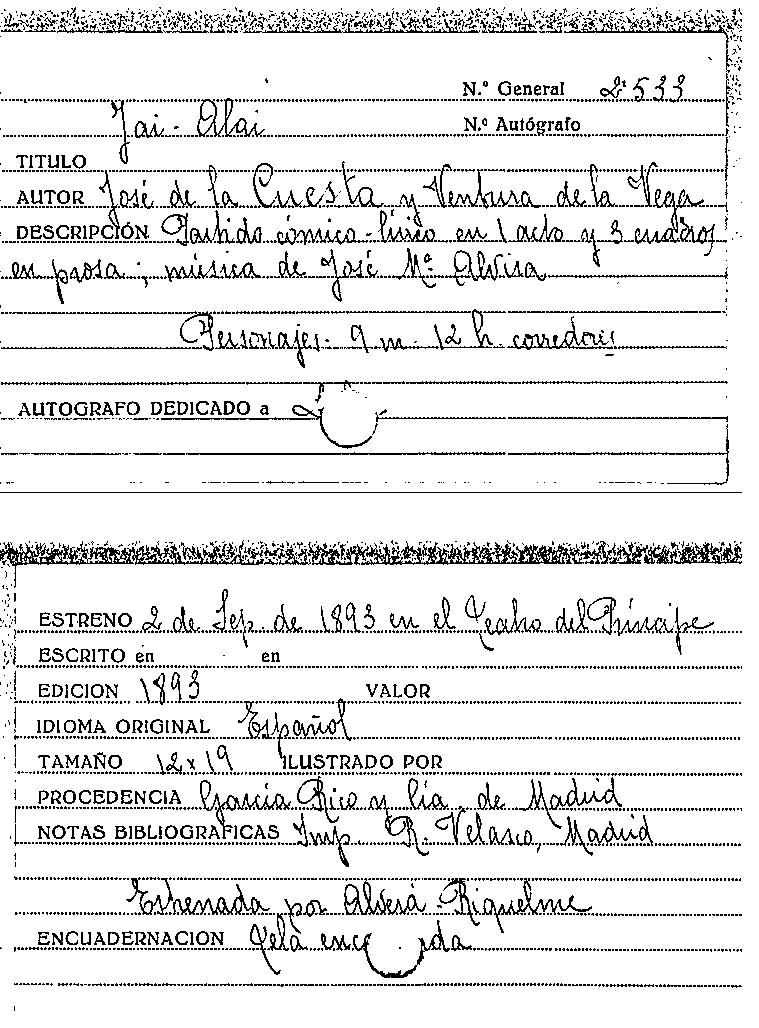 N.º General 2'533
Jai-Alai N.º Autógrafo
TITULO
AUTOR José de la Cuesta y Ventura de la Vega
DESCRIPCIÓN Partido cómico-lírico en 1 acto y 3 cuadros
en prosa; música de José Mª Alvira
Personajes. 9 m. 12 h. corredores
AUTOGRAFO DEDICADO a
ESTRENO 2 de Sep. de 1893 en el Teatro del Príncipe
ESCRITO en en
EDICION 1893 VALOR
IDIOMA ORIGINAL Español
TAMAÑO 12 x 19 ILUSTRADO POR
PROCEDENCIA García Rico y Cía. de Madrid
NOTAS BIBLIOGRAFICAS Imp. R. Velasco, Madrid
Estrenada por Alverá-Riquelme
ENCUADERNACION Tela